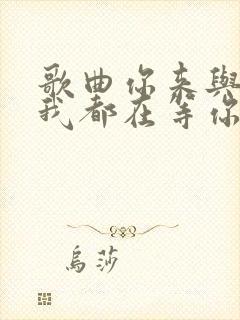 歌曲你来與
我都在等你
烏莎